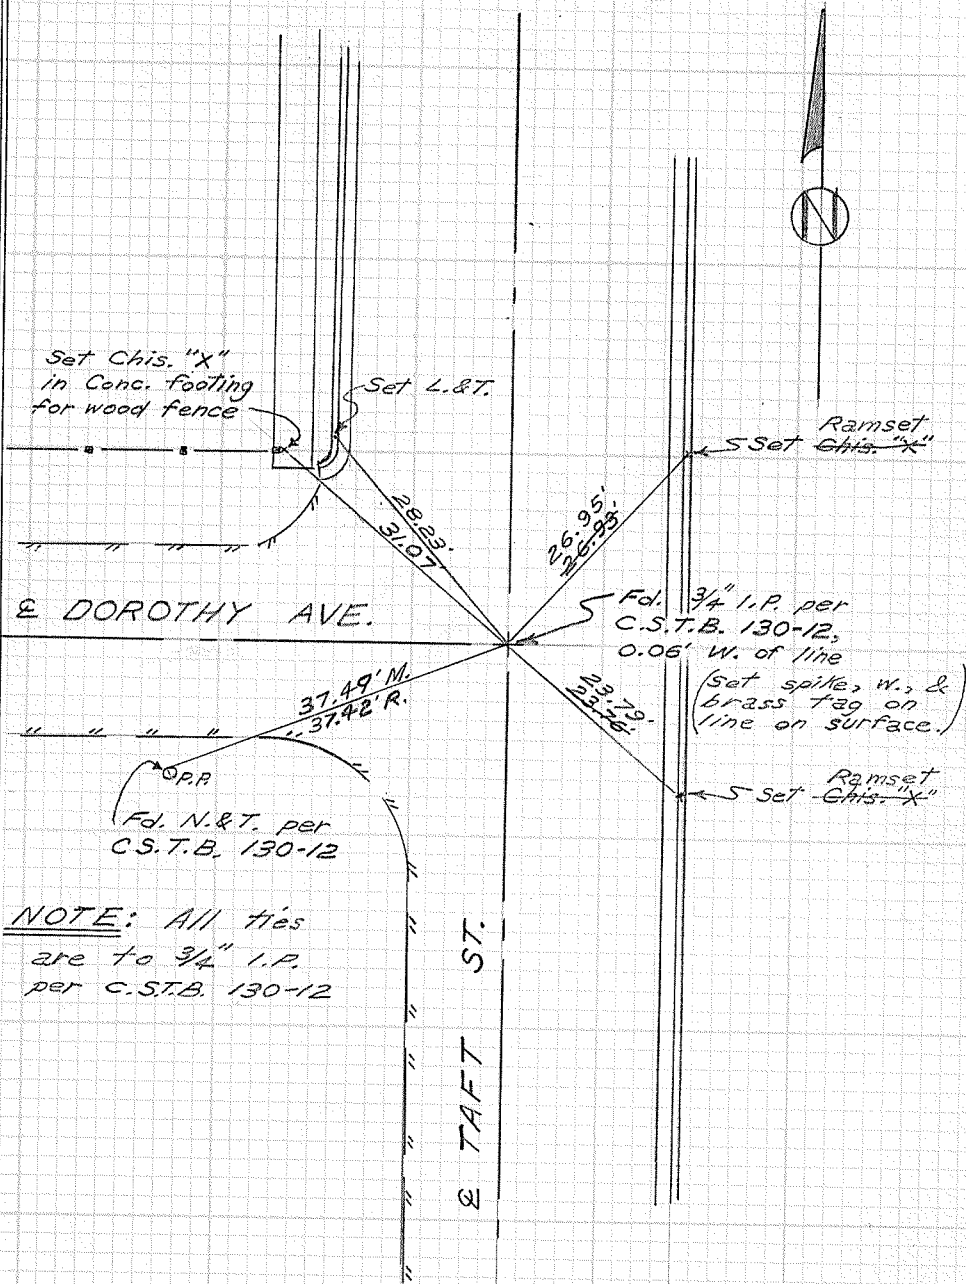 N
Set Chis. "X"
in Conc. footing
for wood fence
Set L.&T.
Ramset
Set Chis. "X"
28.23'
31.07'
26.95'
26.93'
℄ DOROTHY AVE.
Fd. 3/4" I.P. per
C.S.T.B. 130-12,
0.06' W. of line
(Set spike, W., &
brass tag on
line on surface.)
37.49' M.
37.42' R.
23.79'
23.76'
P.P.
Ramset
Set Chis. "X"
Fd. N.&T. per
C.S.T.B. 130-12
NOTE: All ties
are to 3/4" I.P.
per C.S.T.B. 130-12
℄ TAFT ST.